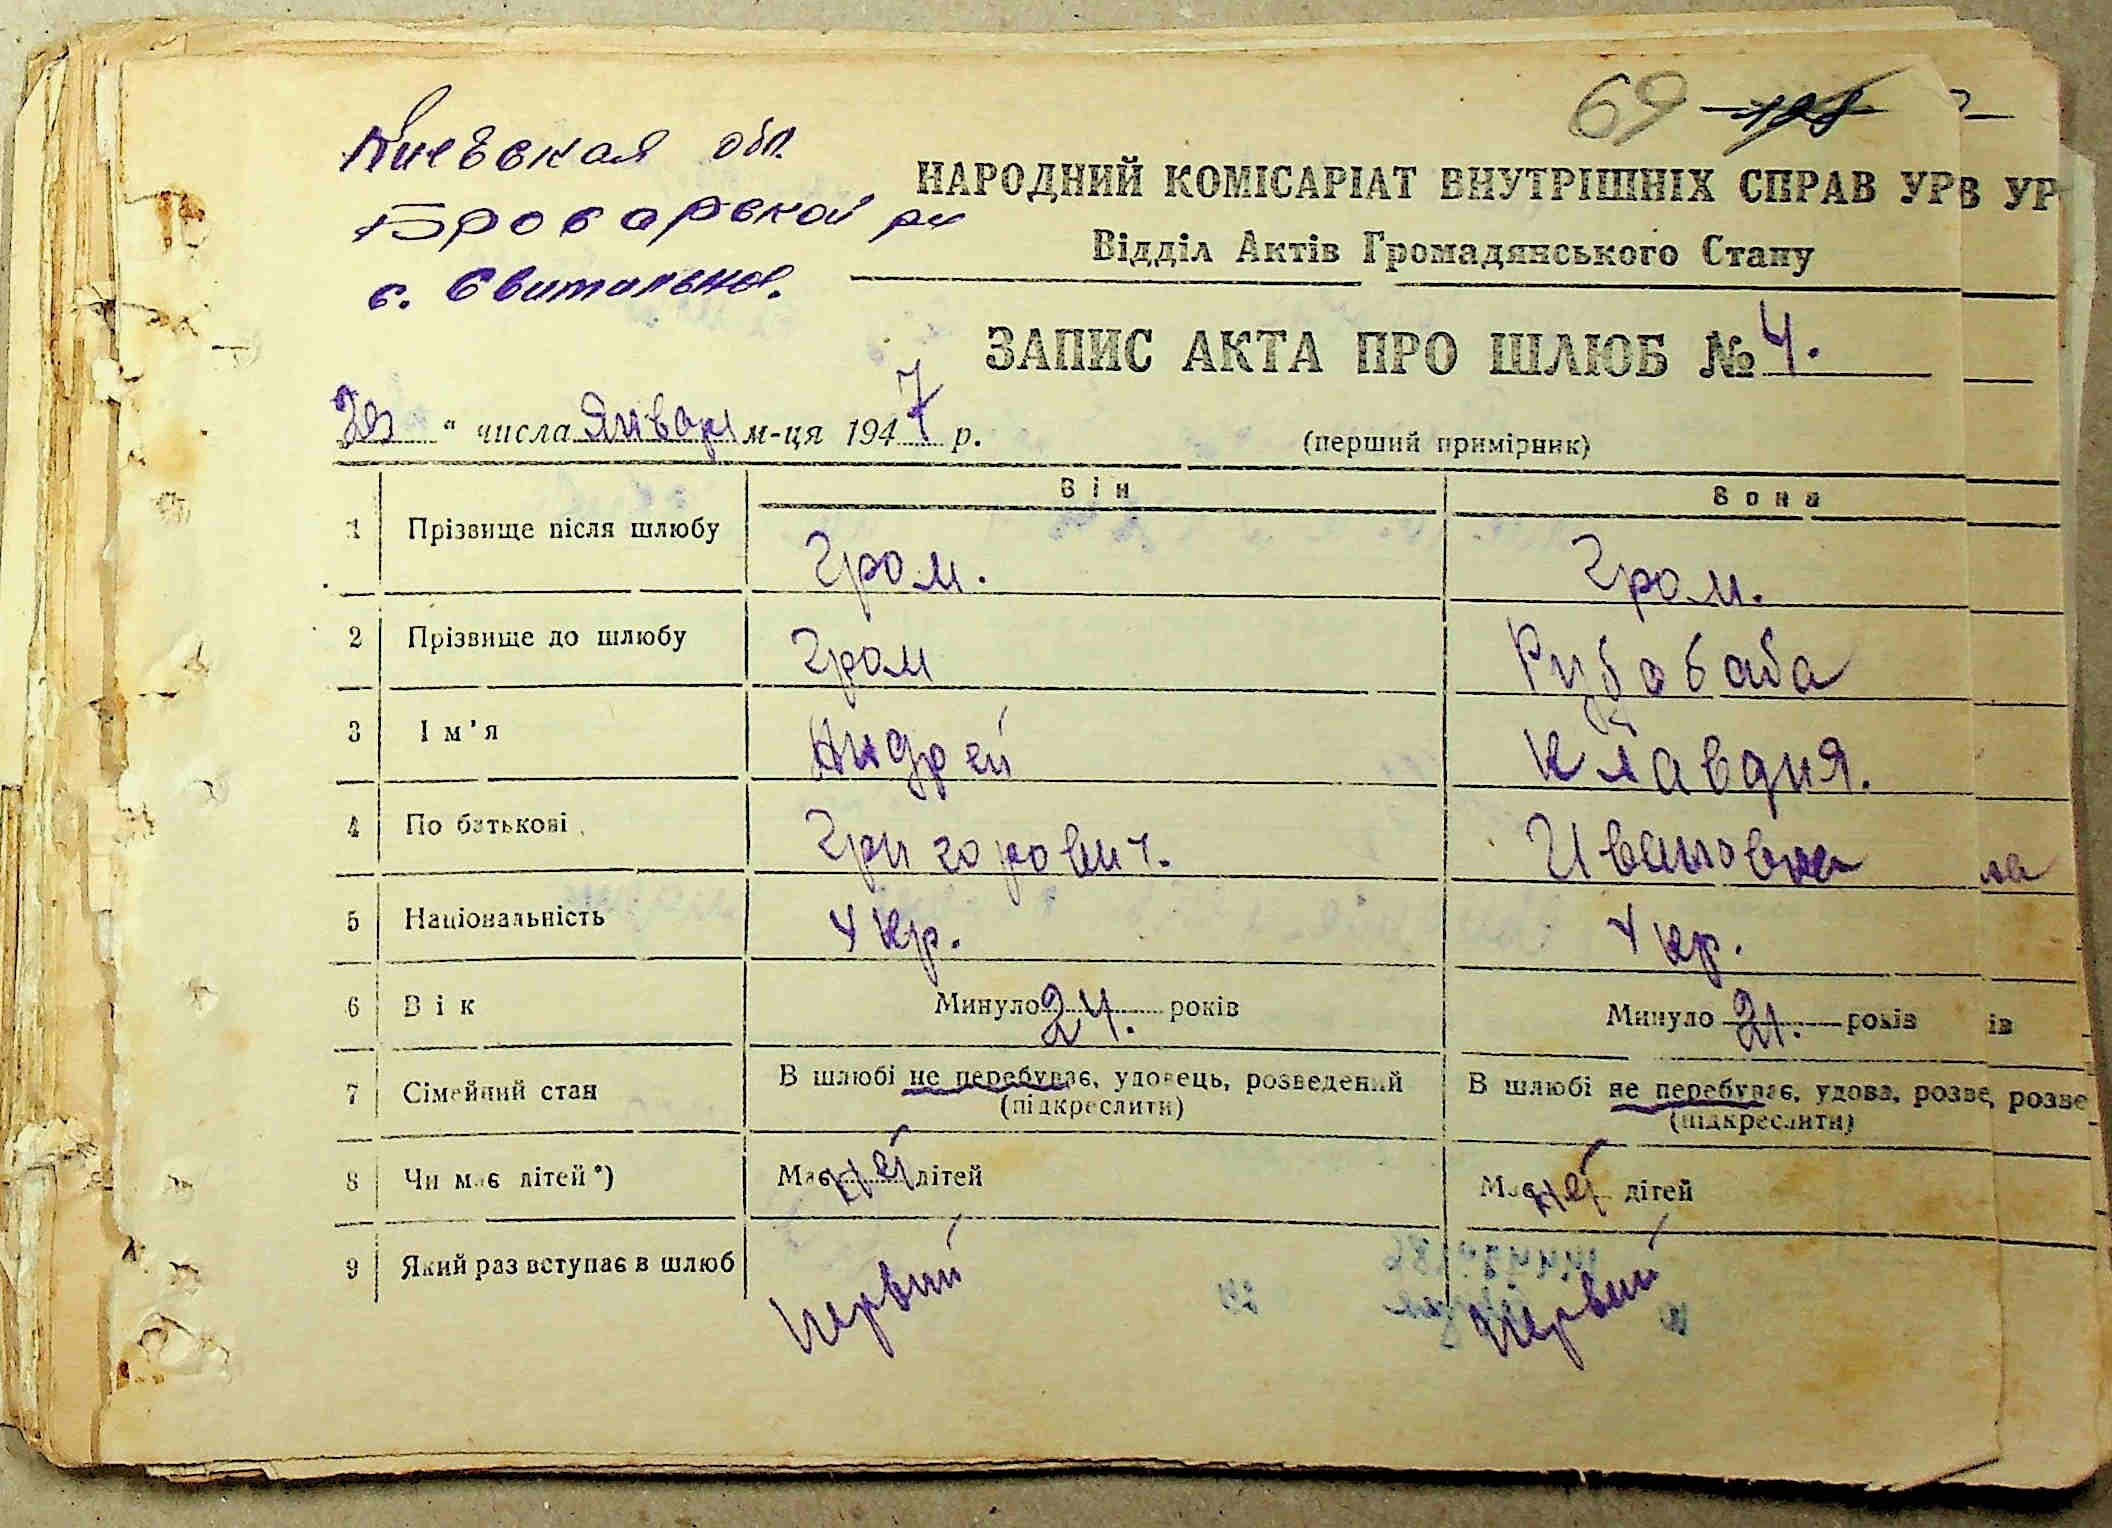 69 128
Киевская обл.
Броварской р-н
с. Свитильнов.
НАРОДНИЙ КОМІСАРІАТ ВНУТРІШНІХ СПРАВ УРВ УР
Відділ Актів Громадянського Стану
ЗАПИС АКТА ПРО ШЛЮБ № 4.
" числа Января м-ця 1947 р.
(перший примірник)
Він Вона
1 Прізвище після шлюбу Гром. Гром.
2 Прізвище до шлюбу Гром Рубабаба
3 Ім'я Андрей Клавдия.
4 По батькові Григорович. Ивановна на
5 Національність Укр. Укр.
6 Вік Минуло 24. років Минуло 21. років ів
7 Сімейний стан В шлюбі не перебуває, удовець, розведений В шлюбі не перебуває, удова, розве, розве
(підкреслити) (підкреслити)
8 Чи має дітей*) Має нет дітей Має нет дітей
9 Який раз вступає в шлюб Первий Первий